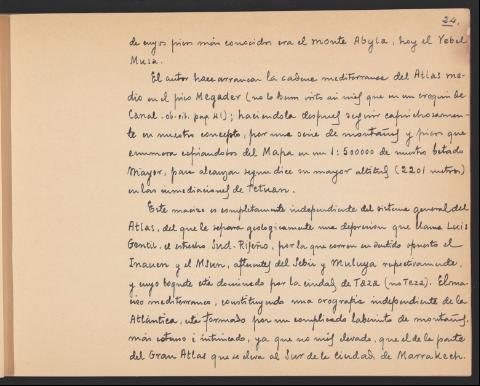 24.
de cuyos picos más conocidos era el monte Abyla, hoy el Yebel
Musa.
El autor hace arrancar la cadena mediterranea del Atlas me-
dio en el pico Megader (no lo hemos visto ni mas que en un croquis de
Canal. ob. cit. pag 41); haciendola despues seguir caprichosamen-
te en nuestro concepto, por una serie de montañas y picos que
enumera copiandolos del Mapa en un 1:500000 de nuestro Estado
Mayor, para alcanzar segun dice su mayor altitud (2201 metros)
en las inmediaciones de Tetuan.
Este macizo es completamente independiente del sistema general del
Atlas, del que le separa geologicamente una depresion que llama Luis
Gentil, el estrecho Sud-Rifeño, por la que corren en sentido opuesto el
Inauen y el Msun, afluentes del Sebú y Muluya respectivamente,
y cuyo boquete esta dominado por la ciudad de Taza (no Teza). El ma-
cizo mediterraneo, constituyendo una orografia independiente de la
Atlántica, esta formado por un complicado laberinto de montañas,
más extenso i intrincado, ya que no más elevado, que el de la parte
del Gran Atlas que se eleva al Sur de la ciudad de Marrakech.